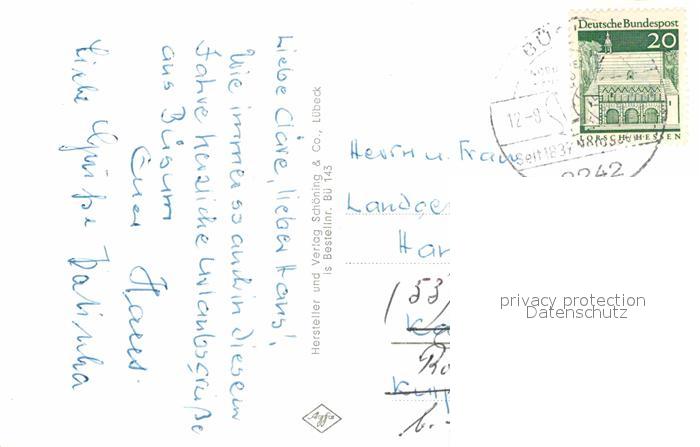 Liebe Cläre, lieber Hans!
Wie immer so auch in diesem
Jahre herzliche Urlaubsgrüße
aus Büsum
Euer Hans
Liebe Grüße
Hersteller und Verlag Schöning & Co., Lübeck
is Bestellnr. BÜ 143
Agfa
Deutsche Bundespost
20
LORSCH/HESSEN
BÜ
12-8
Seit 1837
2242
Herrn u. Frau
Landge
Han
(53)
privacy protection
Datenschutz